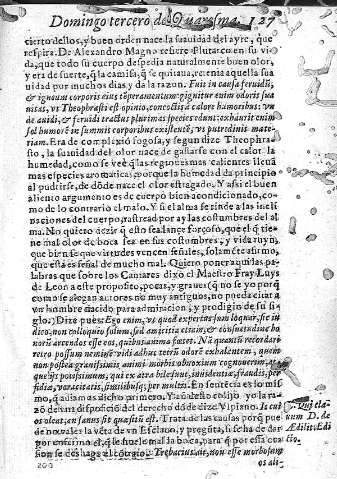 Domingo tercero de Quaresma. 127
cierto dellos, y buen orden nace la suauidad del ayre, que
respira. De Alexandro Magno refiere Plutarco en su vi
da, que todo su cuerpo despedia naturalmente buen olor,
y era de suerte, q̃ la camisa, q̃ se quitaua, retenia aquella sua
uidad por muchos dias, y da la razon. Fuit in causa feruidũ,
& ignium corporis eius temperamentum: gignitur enim odoris sua
uitas, vt Theophrasti est opinio, concoctis à calore humoribus: vn
de auidi, & feruidi tractus plurimas species edunt: exhaurit enim
sol humorẽ in summis corporibus existentẽ, vt putredinis mate-
riam. Era de complexió fogosa, y segun dize Theophra-
sto, la suauidad del olor nace de gastarse con el calor la
humedad, como se vee q̃ las regiones mas calientes lleuã
mas especies aromaticas, porque la humedad da principio
al pudrirse, de dõde nace el olor estragado. Y assi el buen
aliento argumento es de cuerpo bien acondicionado, co-
mo de lo contrario el malo. Y si el alma se rinde a las incli
naciones del cuerpo, rastread por ay las costumbres del al
ma. No quiero dezir q̃ esto sea lance forçoso, que el q̃ tie-
ne mal olor de boca sea en sus costumbres, y vida ruyn,
que bien se que virtudes vencen señales, solamẽte afirmo,
que esta es señal de mucho mal. Quiero poner aqui las pa-
labras que sobre los Cantares dixo el Maestro Fray Luys
de Leon a este proposito, pocas, y graues (q̃ no se yo porq̃
como se alegan autores no muy antiguos, no pueda citar a
vn hombre nacido para admiracion, y prodigio de su si-
glo.) Dize pues: Ego enim, vt quod expertus sum loquar, sic in
dico, non colloquio solum, sed amicitia etiam, & consuetudine ho
norũ arcendos esse eos, quibus anima foetet. Nã quantũ recorda-
reis possum neminẽ vidi adhuc tetrũ odorẽ exhalentem, quem
non postea grauissimis animi morbis obnoxium cognouerim,
perfidia, voracitatis, similibusq; per multi. En sentẽcia es lo mis
mo, q̃ auiamos dicho primero. Y aũ desto colijo yo la ra-
zõ de vna disposiciõ del derecho dõ de dize Vlpiano. Is cui
os olet, an sanus sit quæsitũ est. Trata de las causas porq̃ pue
de no valer la vẽta de vn Esclauo, y pregũta, si se ha de dar
por enfermo el, q̃ le huele mal la boca, para q̃ por essa cau
sa se deshaga el cõtrato. Trebacius ait, non esse morbosum
os ali-
Qui cla-
uum D. de
Ædilit. Edi
cto.